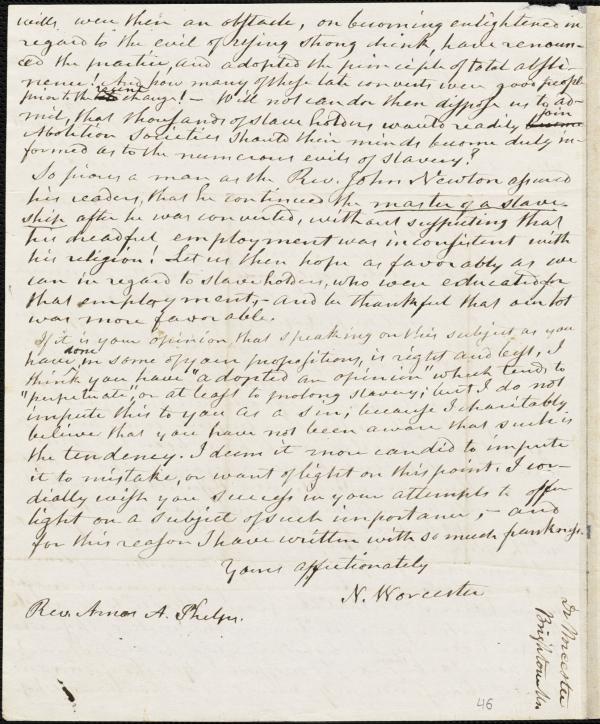 with them an obstacle, on becoming enlightened in
regard to the evil of using strong drink, have renoun-
ced the practice, and adopted the principle of total absti-
nence! And how many of these late converts were good people
prior to the recent change! – Will not candor then dispose us to ad-
mit, that thousands of slave holders would readily join
Abolition Societies should their minds become duly in-
formed as to the numerous evils of slavery?
So pious a man as the Rev. John Newton assured
his readers, that he continued the master of a slave
ship after he was converted, without suspecting that
his dreadful employment was inconsistent with
his religion! Let us then hope as favorably as we
can in regard to slave holders, who were educated for
that employment, – and be thankful that our lot
was more favorable.
If it is your opinion, that speaking on this subject as you
have done in some of your propositions, is right and best, I
think you have "adopted an opinion" which tends to
"perpetuate", or at least to prolong slavery; but I do not
impute this to you as a sin; because I charitably
believe that you have not been aware that such is
the tendency. I deem it more candid to impute
it to mistake, or want of light on this point. I cor-
dially wish you success in your attempts to offer
light on a subject of such importance, – and
for this reason I have written with so much frankness.
Yours affectionately
N. Worcester
Rev. Amos A. Phelps.
Dr Worcester
Brighton Ms
46